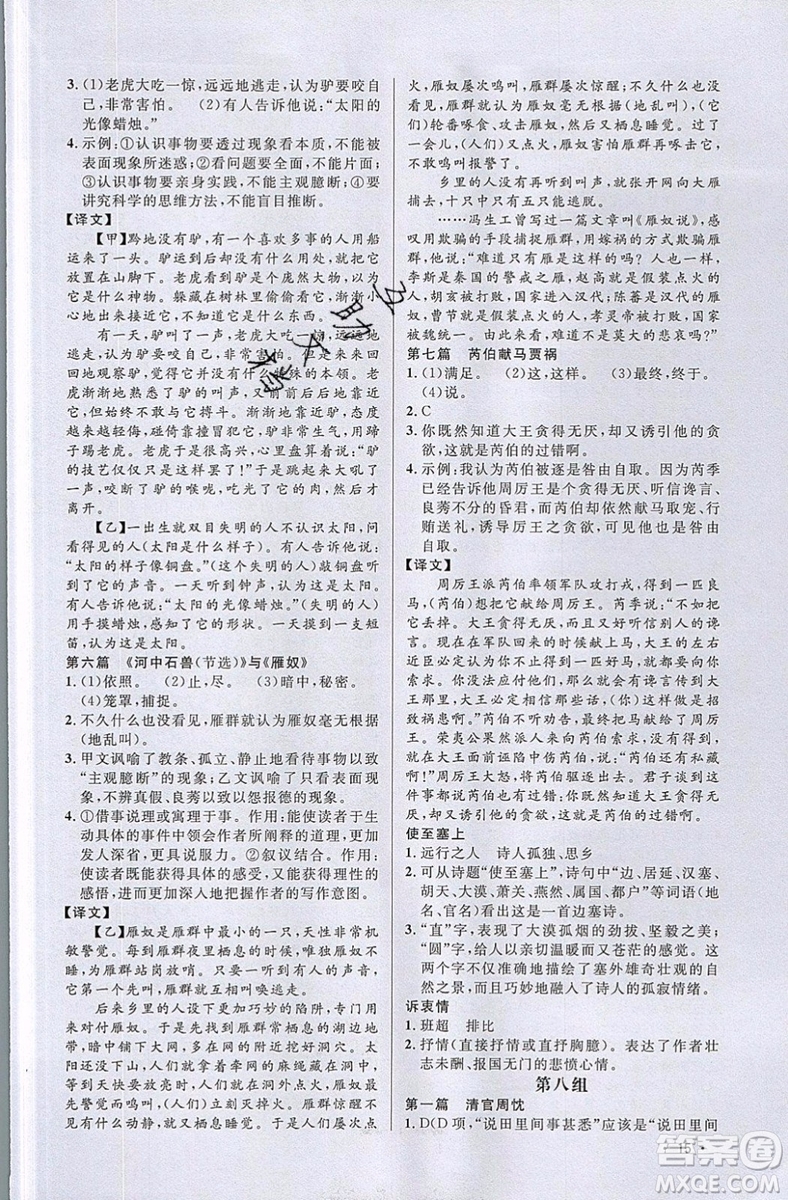 3. (1)老虎大吃一惊,远远地逃走,认为驴要咬自
己,非常害怕。 (2)有人告诉他说:“太阳的
光像蜡烛。”
4. 示例:①认识事物要透过现象看本质,不能被
表面现象所迷惑;②看问题要全面,不能片面;
③认识事物要亲身实践,不能主观臆断;④要
讲究科学的思维方法,不能盲目推断。
【译文】
【甲】黔地没有驴,有一个喜欢多事的人用船
运来了一头。驴运到后却没有什么用处,(他)便
把它放置在山下。老虎看到驴是个庞然大物,认
为它是什么神物。躲藏在树林里偷看,渐渐小
心地出来接近它,不知道它究竟是个什么东西。
有一天,驴大叫了一声,老虎大吃一惊,远远地
逃走,认为驴要咬自己,非常害怕。但是老虎来来
回回地观察驴,觉得它没有什么特殊的本领。老
虎渐渐习惯了驴的叫声,又在驴的前后走动靠近
它,但始终不敢与它搏斗。渐渐地靠近驴,态度
越来越轻侮,碰倚靠撞冒犯了它,驴非常生气,用蹄
子踢老虎。老虎于是很高兴,心里盘算着说:“驴
的技艺仅仅只是这样罢了!”于是跳跃起来大吼了
一声,咬断了驴的喉咙,吃光了它的肉,后来才
离开。
【乙】一出生就双目失明的人不认识太阳,问
看得见的人(太阳是什么样子)。有人告诉他说:
“太阳的样子像铜盘。”(这个失明的人)敲铜盘听
到了它的声音。一天听到钟声,(失明的人)认为
它是太阳。有人告诉他说:“太阳的光像蜡烛。”(失明的人)
用手摸蜡烛,知道了它的形状。一天摸到一支短
笛,认为它是太阳。
第六篇 《河中石兽(节选)》与《雁奴》
1. (1)依照。 (2)止,尽。 (3)暗中,秘密。
(4)笼罩,捕捉。
2. 不久什么也没看见,雁群就认为雁奴毫无根据
(地乱叫)。
3. 甲文讽喻了教条、孤立、静止地看待事物以致
“主观臆断”的现象;乙文讽喻了只看表面现
象,不辨真假、良莠以致以怨报德的现象。
4. ①借事说理或寓理于事。作用:能使读者于生
动具体的事件中领会作者所阐释的道理,更加
发人深省,更具说服力。②叙议结合。作用:
使读者既能获得具体的感受,又能获得理性的
感悟,能更加深入地把握作者的写作意图。
【译文】
【乙】雁奴是雁群中最小的一只,天性非常机
敏警觉。每到雁群在夜里栖息的时候,唯独雁奴
不睡觉,为雁群站岗放哨。有时听到有人的声音,
它一定最先鸣叫,雁群就互相呼唤逃走。
后来乡里的人设下更加巧妙的陷阱,专门用
来对付雁奴。于是先观察雁群常栖息的湖边地
带,暗中铺下大网,多在附近挖一些洞穴。太阳
还没下山时,人们就拿着牵网的麻绳藏在洞中。
等到天快亮时,就在洞外点火,雁奴先鸣叫警示,
(人们)立刻熄灭火。雁群惊醒后看见周围没有
什么动静,又安静地睡觉了。于是,人们屡次点
火,雁奴屡次鸣叫,雁群屡次惊醒;不久什么也没
看见,雁群就认为雁奴毫无根据(地乱叫),(它
们)轮番啄食、攻击雁奴,然后又栖息睡觉。过了
一会儿,(人们)又点火,雁奴害怕雁群啄它,不
敢鸣叫报警了。
乡里的人没有听到叫声,就张开网向大雁
捕去,十只中只有五只可以逃脱。
……冯生工曾写过一篇文章叫《雁奴说》,感
叹用欺骗的手段捕捉雁群,用嫁祸的方式欺骗雁
群。他说:“难道只有雁这样吗?人也是这样啊!
李斯是秦国的警戒之雁,赵高就是假装点火的
人,胡亥被打败,国家进入汉代;陈蕃是汉代的雁
奴,曹节就是假装点火的人,孝灵帝被打败,国家
被魏统一。由此看来,难道不是莫大的悲哀吗?”
第七篇 芮伯献马贾祸
1. (1)满足。 (2)这,这样。 (3)最终,终于。
(4)说。
2. C
3. 你既然知道大王贪得无厌,却又诱引他的贪
欲,这是芮伯的过错啊。
4. 示例:我认为芮伯被逐是咎由自取。因为芮季
已经告诉他周厉王是个贪得无厌、听信谗言、
良莠不分的昏君,而芮伯却献马取宠,行
贿送礼,诱导厉王之贪欲,因而芮伯是咎由
自取。
【译文】
周厉王派芮伯率领军队攻打戎,得到一匹良
马,(芮伯)想把它献给周厉王。芮季说:“不如舍
弃它。大王贪得无厌,而又喜欢听信他人的谗
言。现在在军队回来后献上马,大王的左右
近臣必定认为你得到的不止一匹马,都会向你
索求。你没法应付他们的索求,那么他们将会在
大王那里进谗言,大王必定相信他们。这是招
致祸患啊。”芮伯不听劝告,最终献马给了周厉
王。荣夷公果然派人来向芮伯求取(财物),没
有得到,于是就在大王面前诬陷中伤芮伯说:“芮
伯私藏财物。”周厉王大怒,驱逐了芮伯。君子谈到这
件事情认为芮伯也有过错。你既然知道大王贪得
无厌,却又诱引他的贪欲,这是芮伯的过错啊。
使至塞上
1. 远行之人 诗人孤独、思乡
2. 可从诗题“使至塞上”,诗句中“边、居延、汉塞、
胡天、大漠、萧关、燕然、属国、都护”等词语(或
类似表述)看出,这是一首边塞诗。
3. “直”字,表现了大漠孤烟的劲拔、坚毅之美;
“圆”字,给人以亲切温暖而又苍茫的感觉。这
两个字不仅准确地描绘了塞外雄奇壮观的自
然景象,而且巧妙地融入了诗人的孤寂情绪。
诉衷情
1. 班超 排比
2. 抒情(直接抒情或直抒胸臆)。表达了作者壮
志未酬、报国无门的悲愤心情。
第八组
第一篇 清官周忱
1. D(D项,“说田里间事甚悉”应该是“说田里间
· 15 ·
答案圈
MXQE.COM